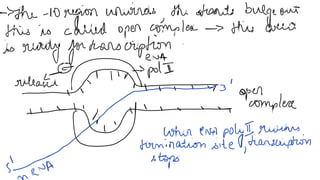 →The -10 region unwinds the strands bulge out
this is called open complex → the DNA
is ready for transcription.
RNA
pol II
released
3'
open
complex
When RNA poly II reaches
termination site, transcription
stops
5'
mRNA